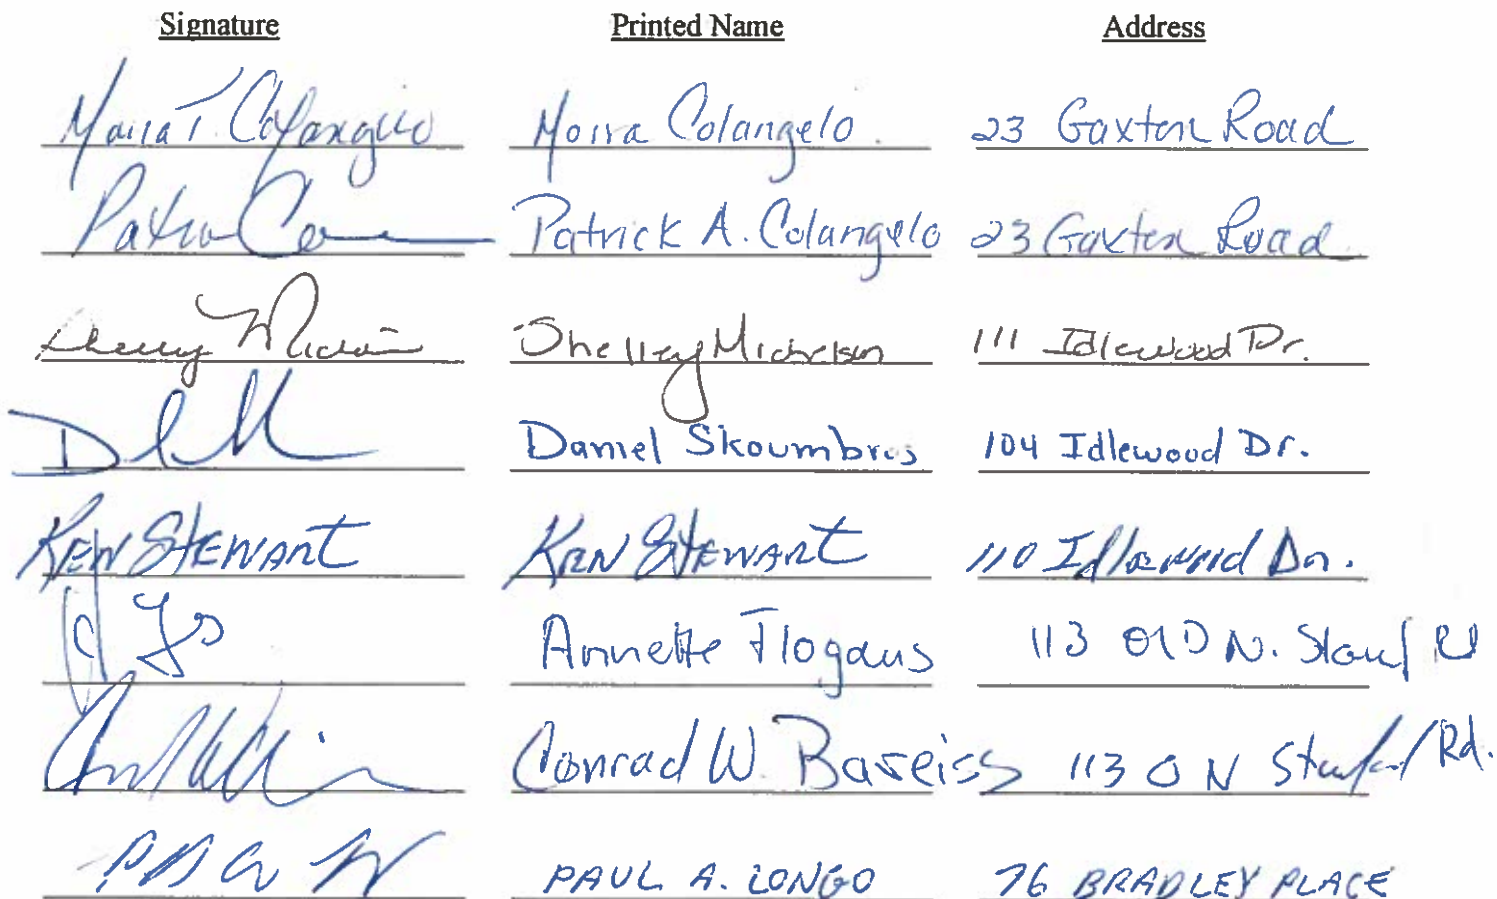 Signature Printed Name Address
Moira T. Colangelo Moira Colangelo. 23 Gaxton Road
Patrick A. Colangelo 23 Gaxton Road
Shelley Michelson 111 Idlewood Dr.
Daniel Skoumbros 104 Idlewood Dr.
KEN STEWART KEN STEWART 110 Idlewood Dr.
Annette Flogaus 113 OLD N. Stamf Rd
Conrad W. Bareiss 113 O N Stamford Rd.
PAUL A. LONGO 76 BRADLEY PLACE